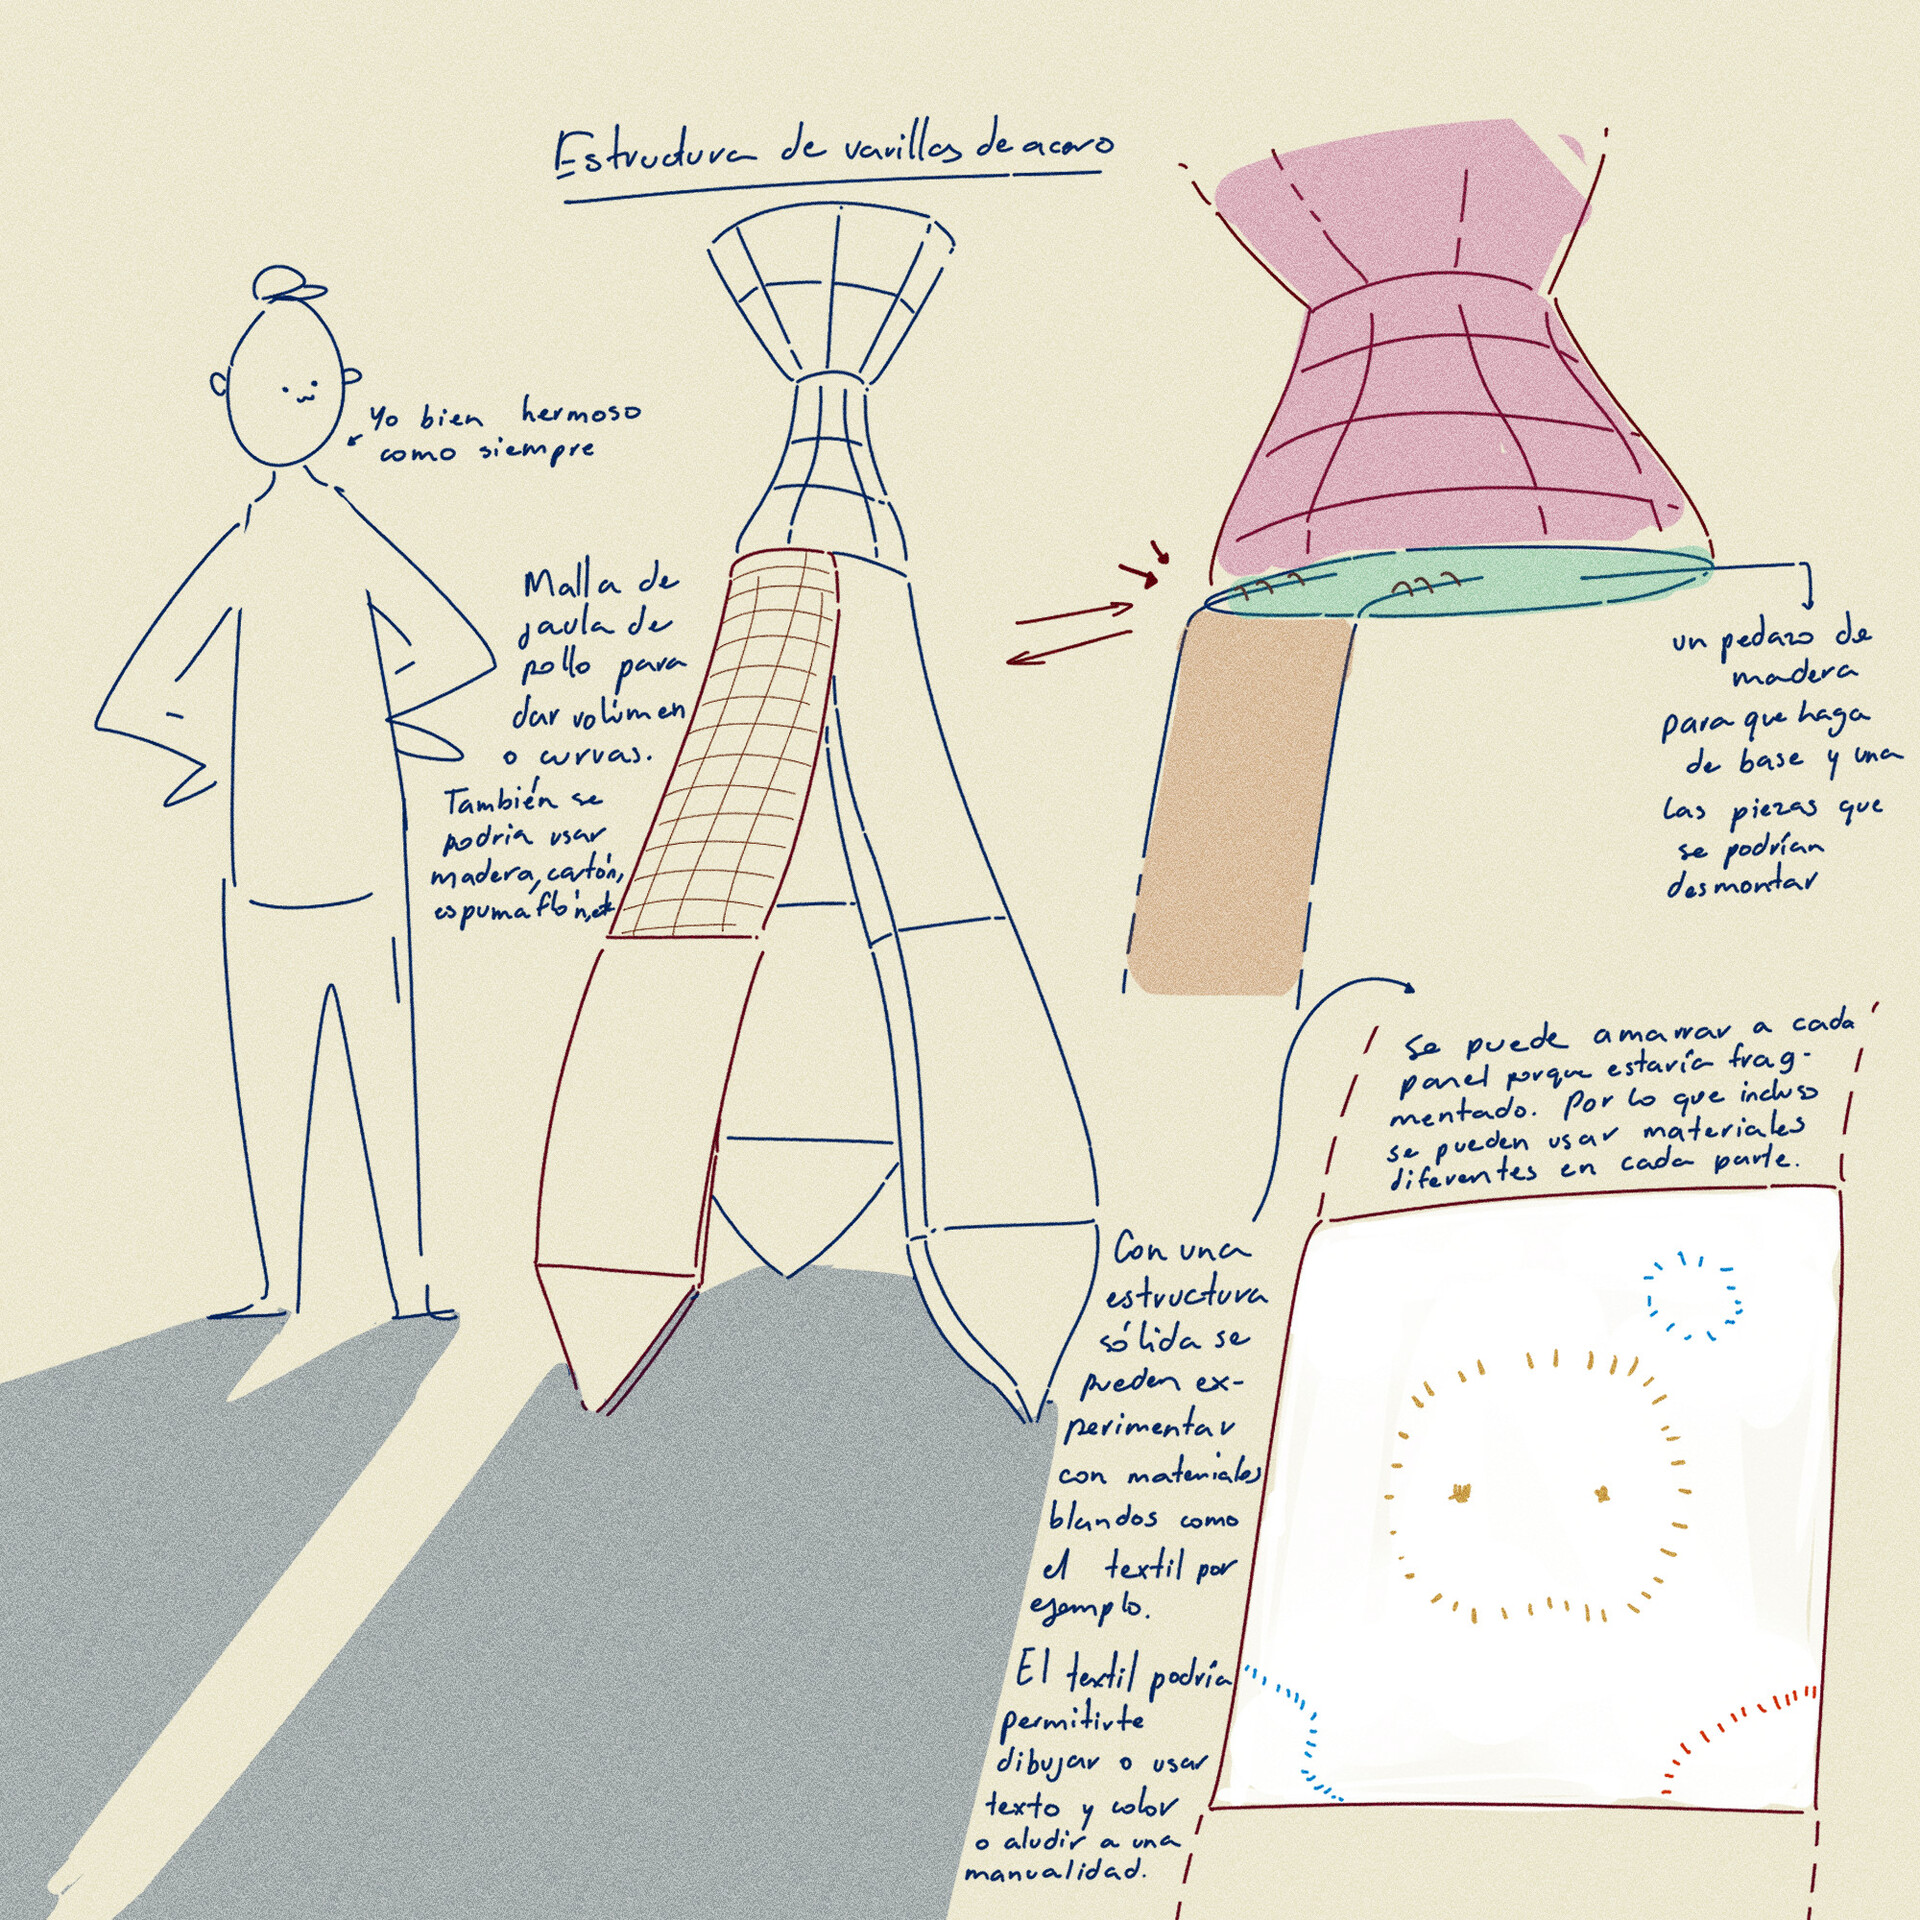 Estructura de varillas de acero
Yo bien hermoso
como siempre
Malla de
jaula de
pollo para
dar volúmen
o curvas.
También se
podria usar
madera, cartón,
espumaflón, etc
un pedazo de
madera
para que haga
de base y una
las piezas que
se podrían
desmontar
Se puede amarrar a cada
panel porque estaría frag-
mentado. Por lo que incluso
se pueden usar materiales
diferentes en cada parte.
Con una
estructura
sólida se
pueden ex-
perimentar
con materiales
blandos como
el textil por
ejemplo.
El textil podría
permitirte
dibujar o usar
texto y color
o aludir a una
manualidad.